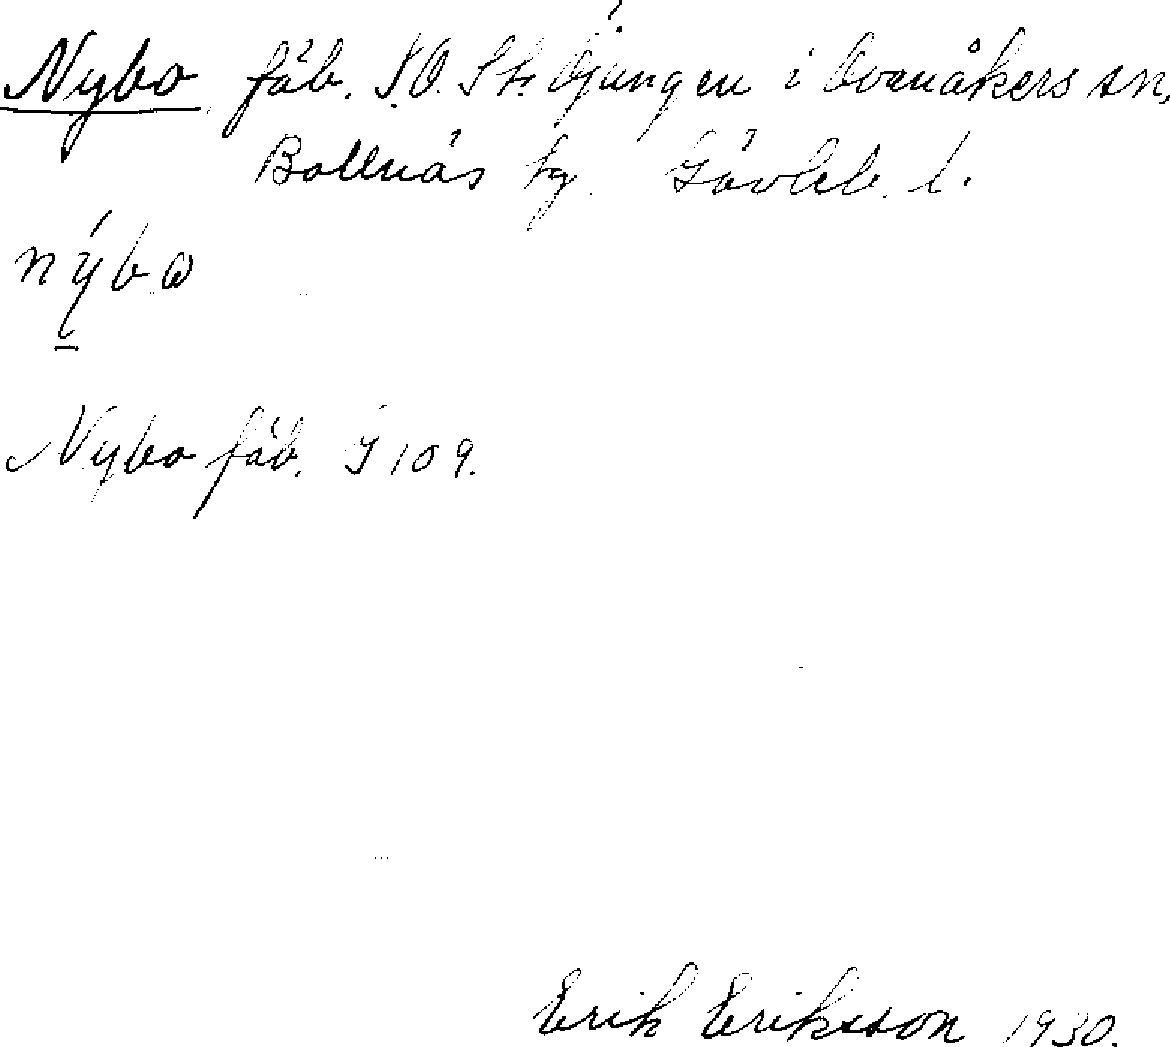 Nybo fäb. S.O. St. Öjungen i Ovanåkers sn,
Bollnäs tg. Gävleb. l.
nýbω
Nybo fäb. J 109.
Erik Eriksson 1930.